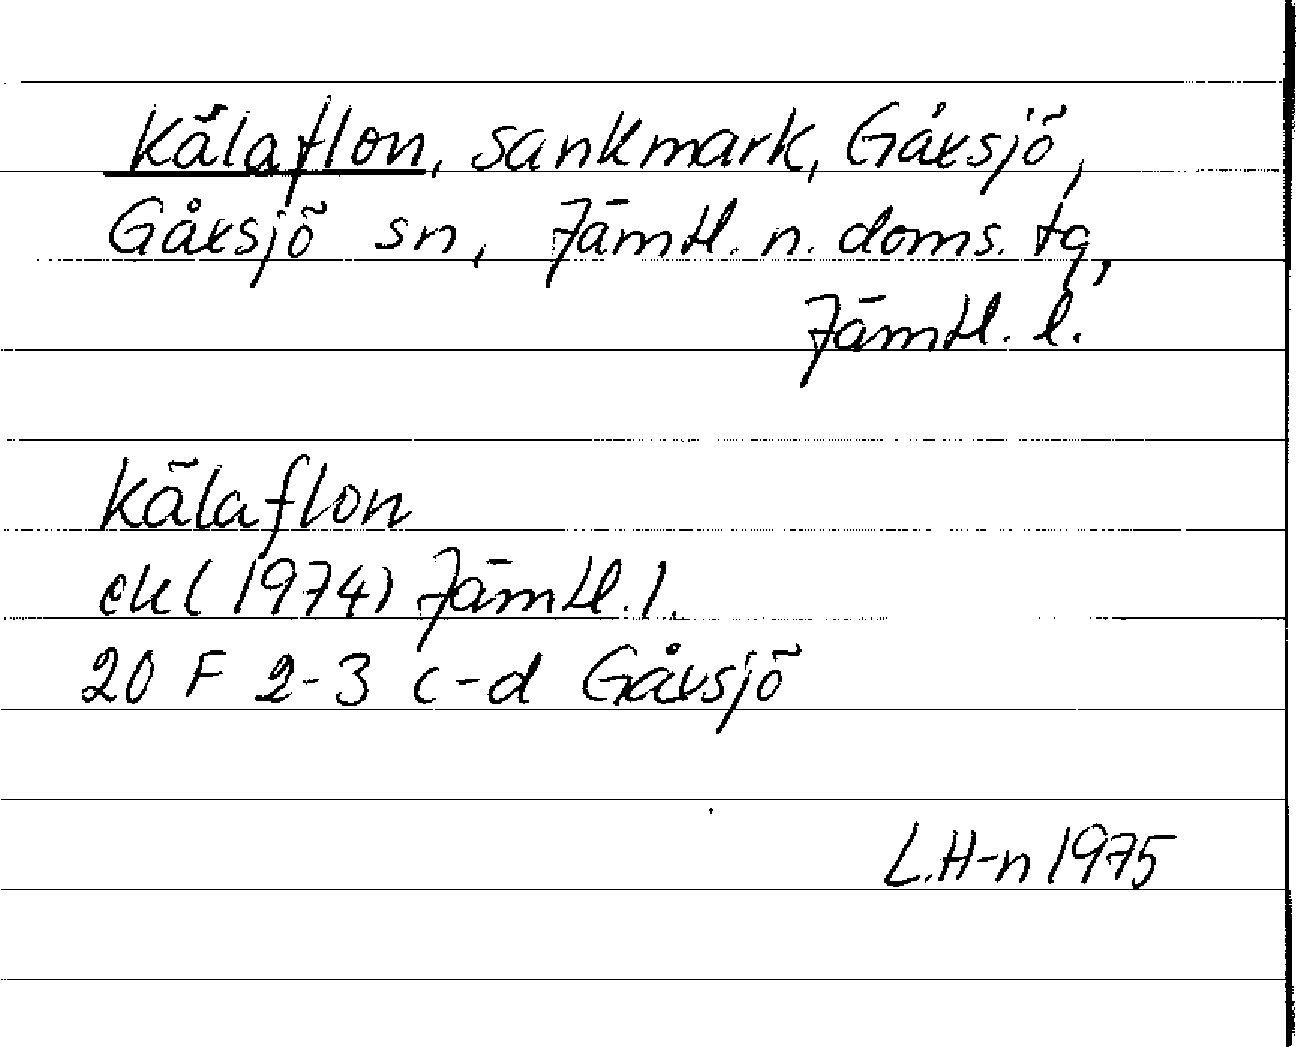 Kälaflon, sankmark, Gåxsjö,
Gåxsjö sn, Jämtl. n. doms. tg,
Jämtl. l.
Kälaflon
ek (1974) Jämtl. l.
20 F 2-3 c-d Gåxsjö
L.H-n 1975